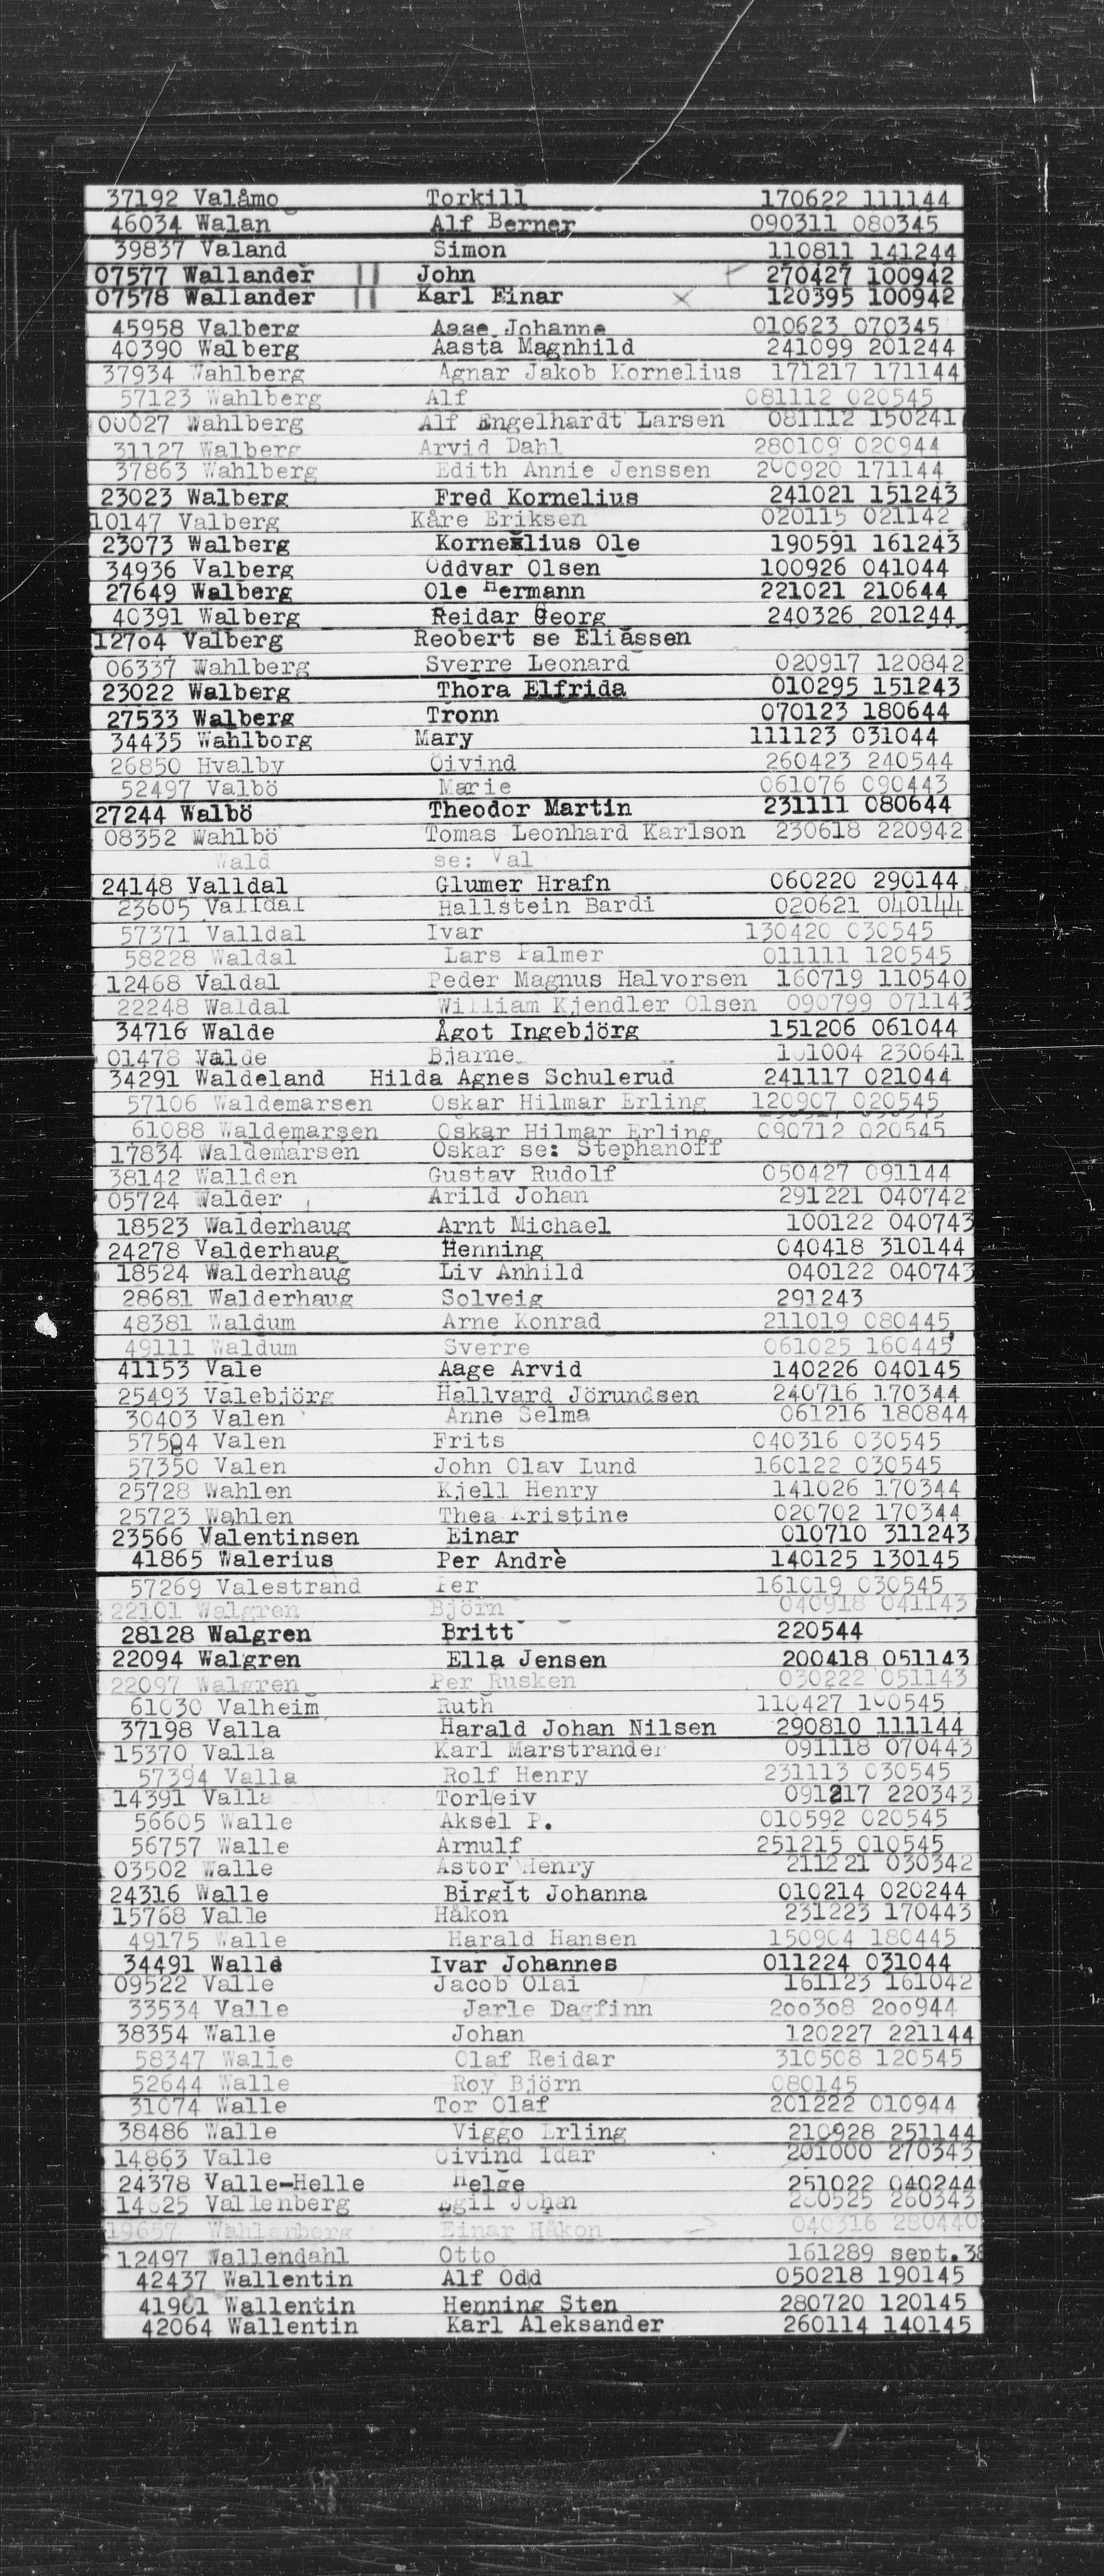 37192 Valåmo Torkill 170622 111144
46034 Walan Alf Berner 090311 080345
39837 Valand Simon 110811 141244
07577 Wallander || John 270427 100942
07578 Wallander || Karl Einar x 120395 100942
45958 Valberg Aase Johanne 010623 070345
40390 Walberg Aasta Magnhild 241099 201244
37934 Wahlberg Agnar Jakob Kornelius 171217 171144
57123 Wahlberg Alf 081112 020545
00027 Wahlberg Alf Engelhardt Larsen 081112 150241
31127 Walberg Arvid Dahl 280109 020944
37863 Wahlberg Edith Annie Jenssen 171144
23023 Walberg Fred Kornelius 241021 151243
10147 Valberg Kåre Eriksen 020115 021142
23073 Walberg Kornexlius Ole 190591 161243
34936 Valberg Oddvar Olsen 100926 041044
27649 Walberg Ole Hermann 221021 210644
40391 Walberg Reidar Georg 240326 201244
12704 Valberg Reobert se Eliassen
06337 Wahlberg Sverre Leonard 020917 120842
23022 Walberg Thora Elfrida 010295 151243
27533 Walberg Tronn 070123 180644
34435 Wahlborg Mary 111123 031044
26850 Hvalby Öivind 260423 240544
52497 Valbö Marie 061076 090443
27244 Walbö Theodor Martin 231111 080644
08352 Wahlbö Tomas Leonhard Karlson 230618 220942
Wald se: Val
24148 Valldal Glumer Hrafn 060220 290144
23605 Valldal Hallstein Bardi 020621 040144
57371 Valldal Ivar 130420 030545
58228 Waldal Lars Palmer 011111 120545
12468 Valdal Peder Magnus Halvorsen 160719 110540
22248 Waldal William Kjendler Olsen 090799 071143
34716 Walde Ågot Ingebjörg 151206 061044
01478 Valde Bjarne 230641
34291 Waldeland Hilda Agnes Schulerud 241117 021044
57106 Waldemarsen Oskar Hilmar Erling 120907 020545
61088 Waldemarsen Oskar Hilmar Erling 090712 020545
17834 Waldemarsen Oskar se: Stephanoff
38142 Wallden Gustav Rudolf 050427 091144
05724 Walder Arild Johan 291221 040742
18523 Walderhaug Arnt Michael 100122 040743
24278 Valderhaug Henning 040418 310144
18524 Walderhaug Liv Anhild 040122 040743
28681 Walderhaug Solveig 291243
48381 Waldum Arne Konrad 211019 080445
49111 Waldum Sverre 061025 160445
41153 Vale Aage Arvid 140226 040145
25493 Valebjörg Hallvard Jörundsen 240716 170344
30403 Valen Anne Selma 061216 180844
Valen Frits 040316 030545
57350 Valen John Olav Lund 160122 030545
25728 Wahlen Kjell Henry 141026 170344
25723 Wahlen Thea Kristine 020702 170344
23566 Valentinsen Einar 010710 311243
41865 Walerius Per Andrè 140125 130145
57269 Valestrand Per 161019 030545
22101 Walgren Björn 040918 041143
28128 Walgren Britt 220544
22094 Walgren Ella Jensen 200418 051143
22097 Walgren Per Rusken 030222 051143
61030 Valheim Ruth 110427
37198 Valla Harald Johan Nilsen 290810 111144
15370 Valla Karl Marstrander 091118 070443
57394 Valla Rolf Henry 231113 030545
14391 Valla Torleiv 091217 220343
56605 Walle Aksel P. 010592 020545
56757 Walle Arnulf 251215 010545
03502 Walle Astor Henry 211221 030342
24316 Walle Birgit Johanna 010214 020244
15768 Valle Håkon 231223 170443
49175 Walle Harald Hansen 150904 180445
34491 Walle Ivar Johannes 011224 031044
09522 Valle Jacob Olai 161123 161042
33534 Valle Jarle Dagfinn 200308 200944
38354 Walle Johan 120227 221144
58347 Walle Olaf Reidar 310508 120545
52644 Walle Roy Björn 080145
31074 Walle Tor Olaf 201222 010944
38486 Walle Viggo Erling 210928 251144
14863 Valle Öivind Idar 201000 270343
24378 Valle-Helle Helge 251022 040244
Vallenberg Egil Johan 260343
19657 Wahlenberg Einar Håkon 040316 280440
12497 Wallendahl Otto 161289 sept.38
42437 Wallentin Alf Odd 050218 190145
41901 Wallentin Henning Sten 280720 120145
42064 Wallentin Karl Aleksander 260114 140145